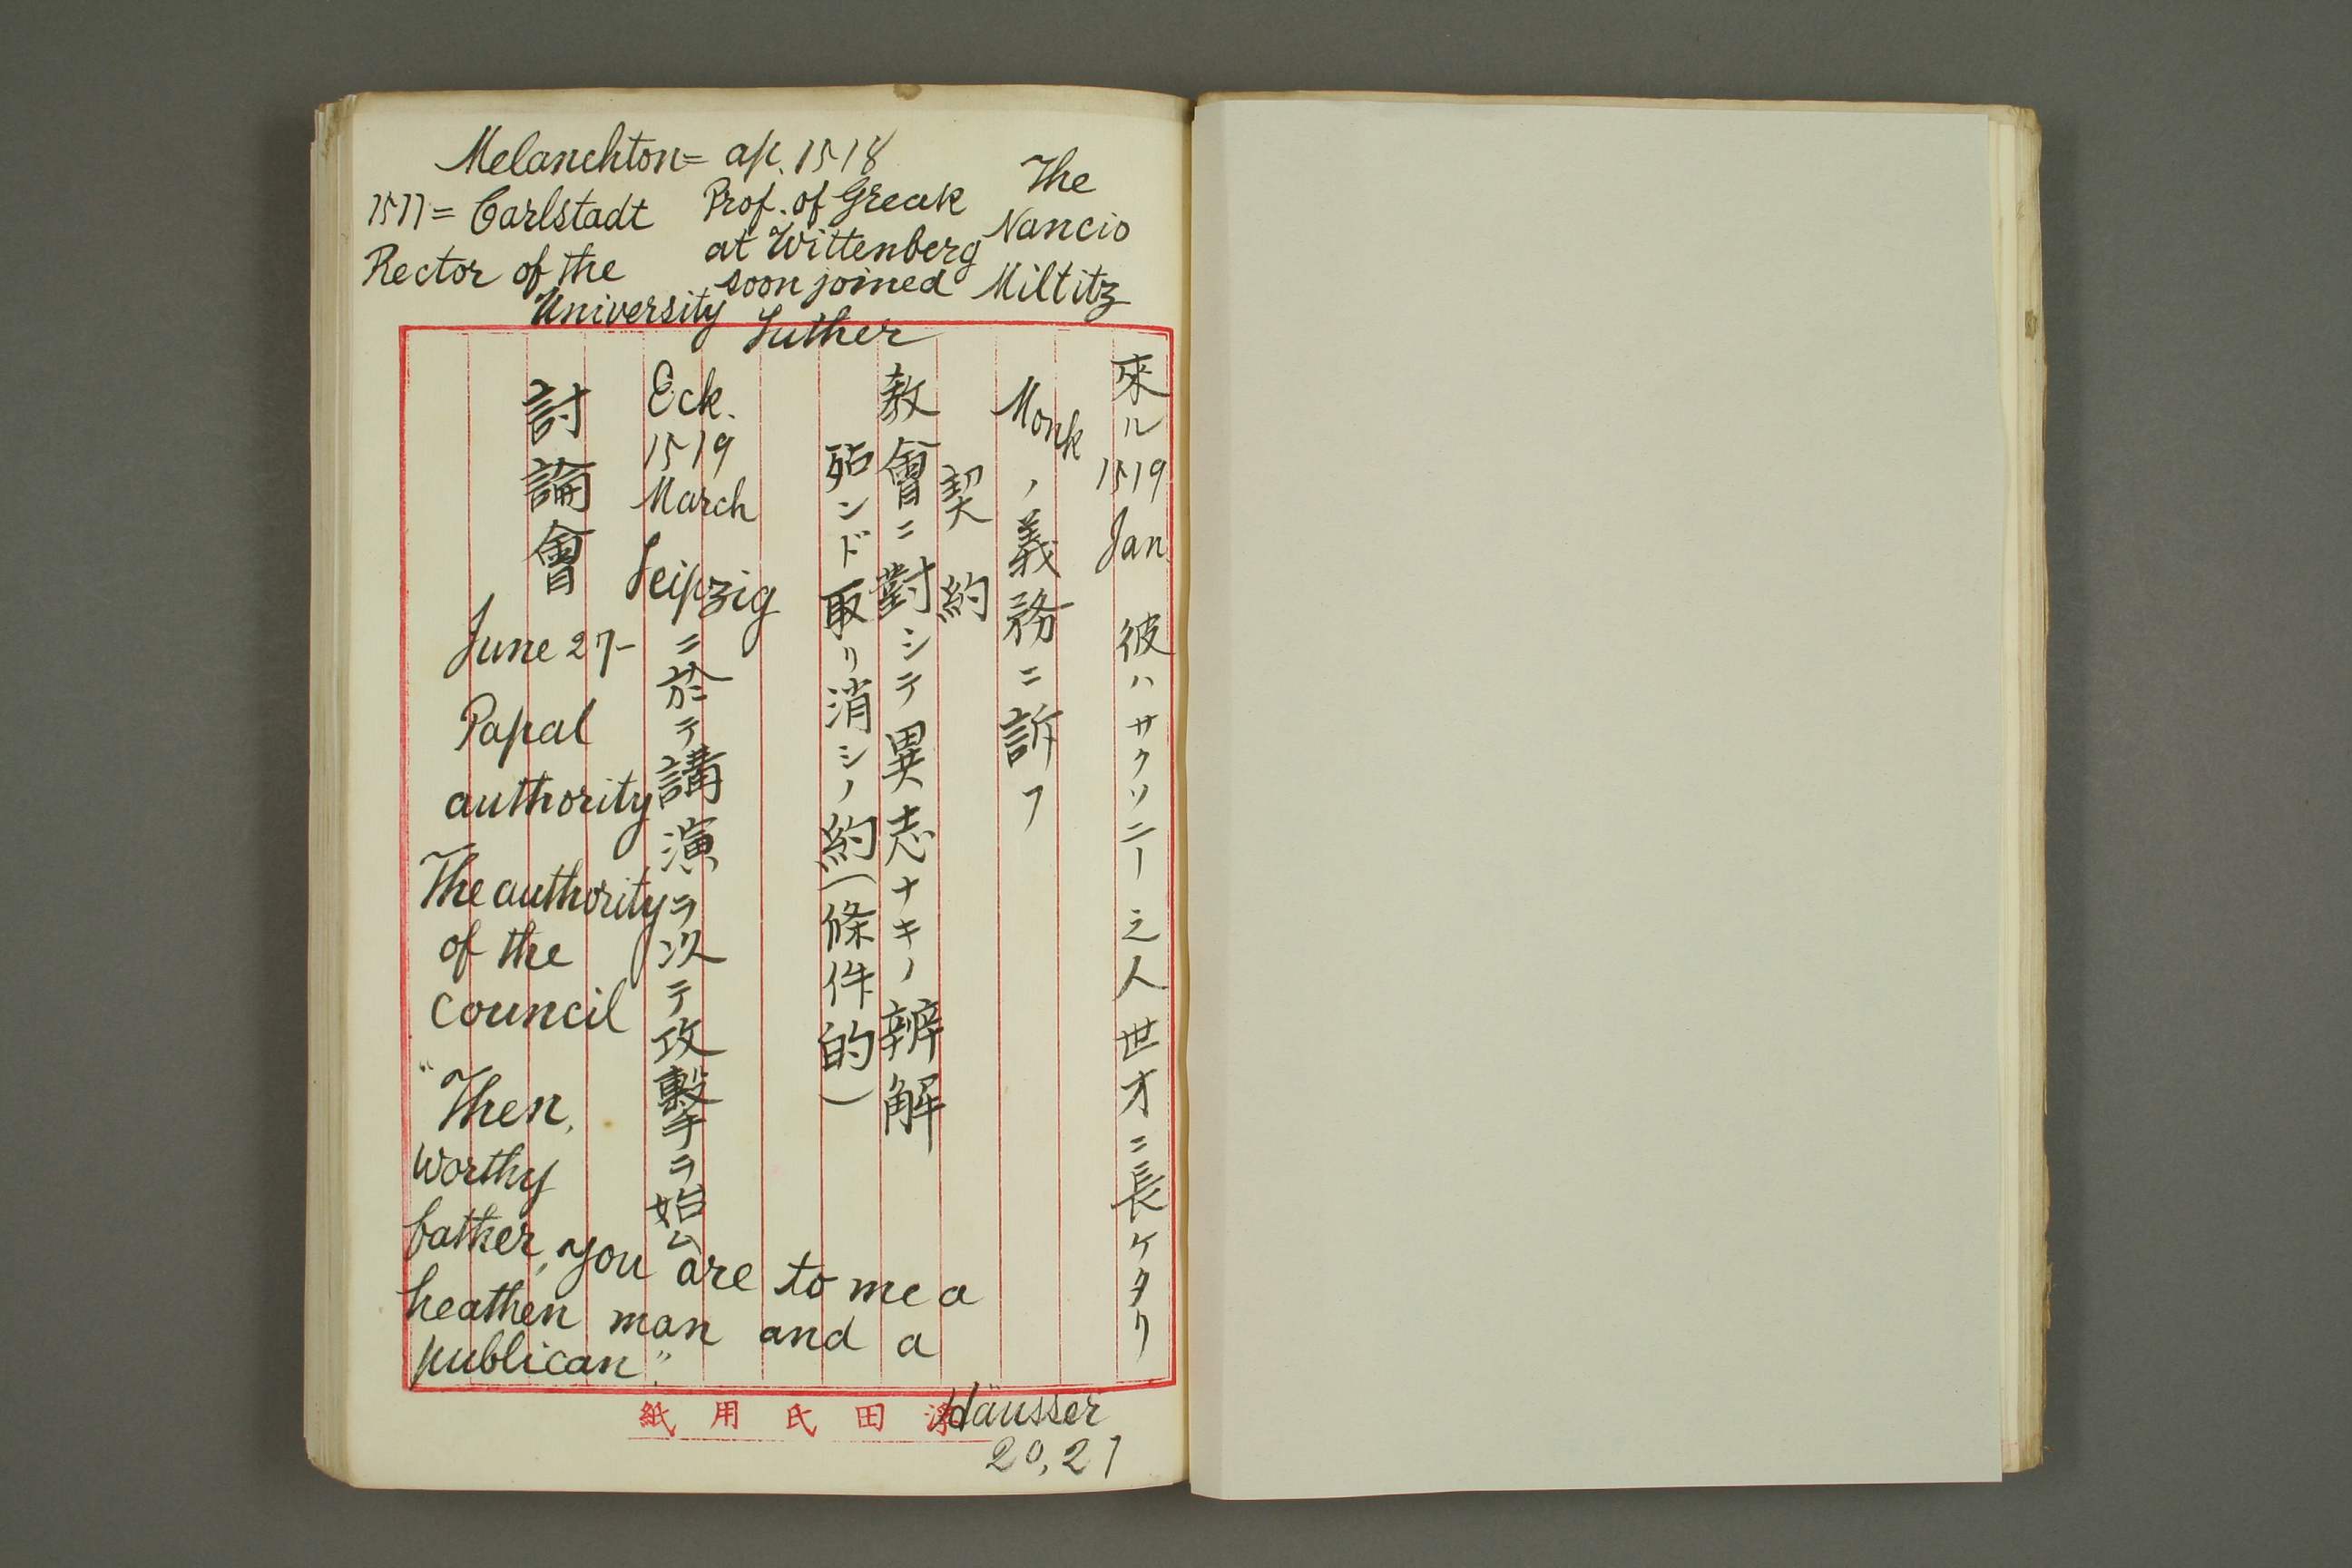 Melanchton = ap. 1518
Prof. of Greak
at Wittenberg
soon joined
Luther
1511 = Carlstadt
Rector of the
University
The
Nancio
Miltitz
來ル 1519 Jan. 彼ハサクソニー之人世才ニ長ケタリ
Monk ノ義務ニ訴フ
契約
教會ニ對シテ異志ナキノ辨解
殆ンド取リ消シノ約(條件的)
Eck. 1519 March Leipzig ニ於テ講演ヲ次テ攻擊ヲ始ム
討論會
June 27-
Papal
authority
The authority
of the
council
"Then,
worthy
father, you are to me a
heathen man and a
publican".
Häusser
20, 21
紙用氏田